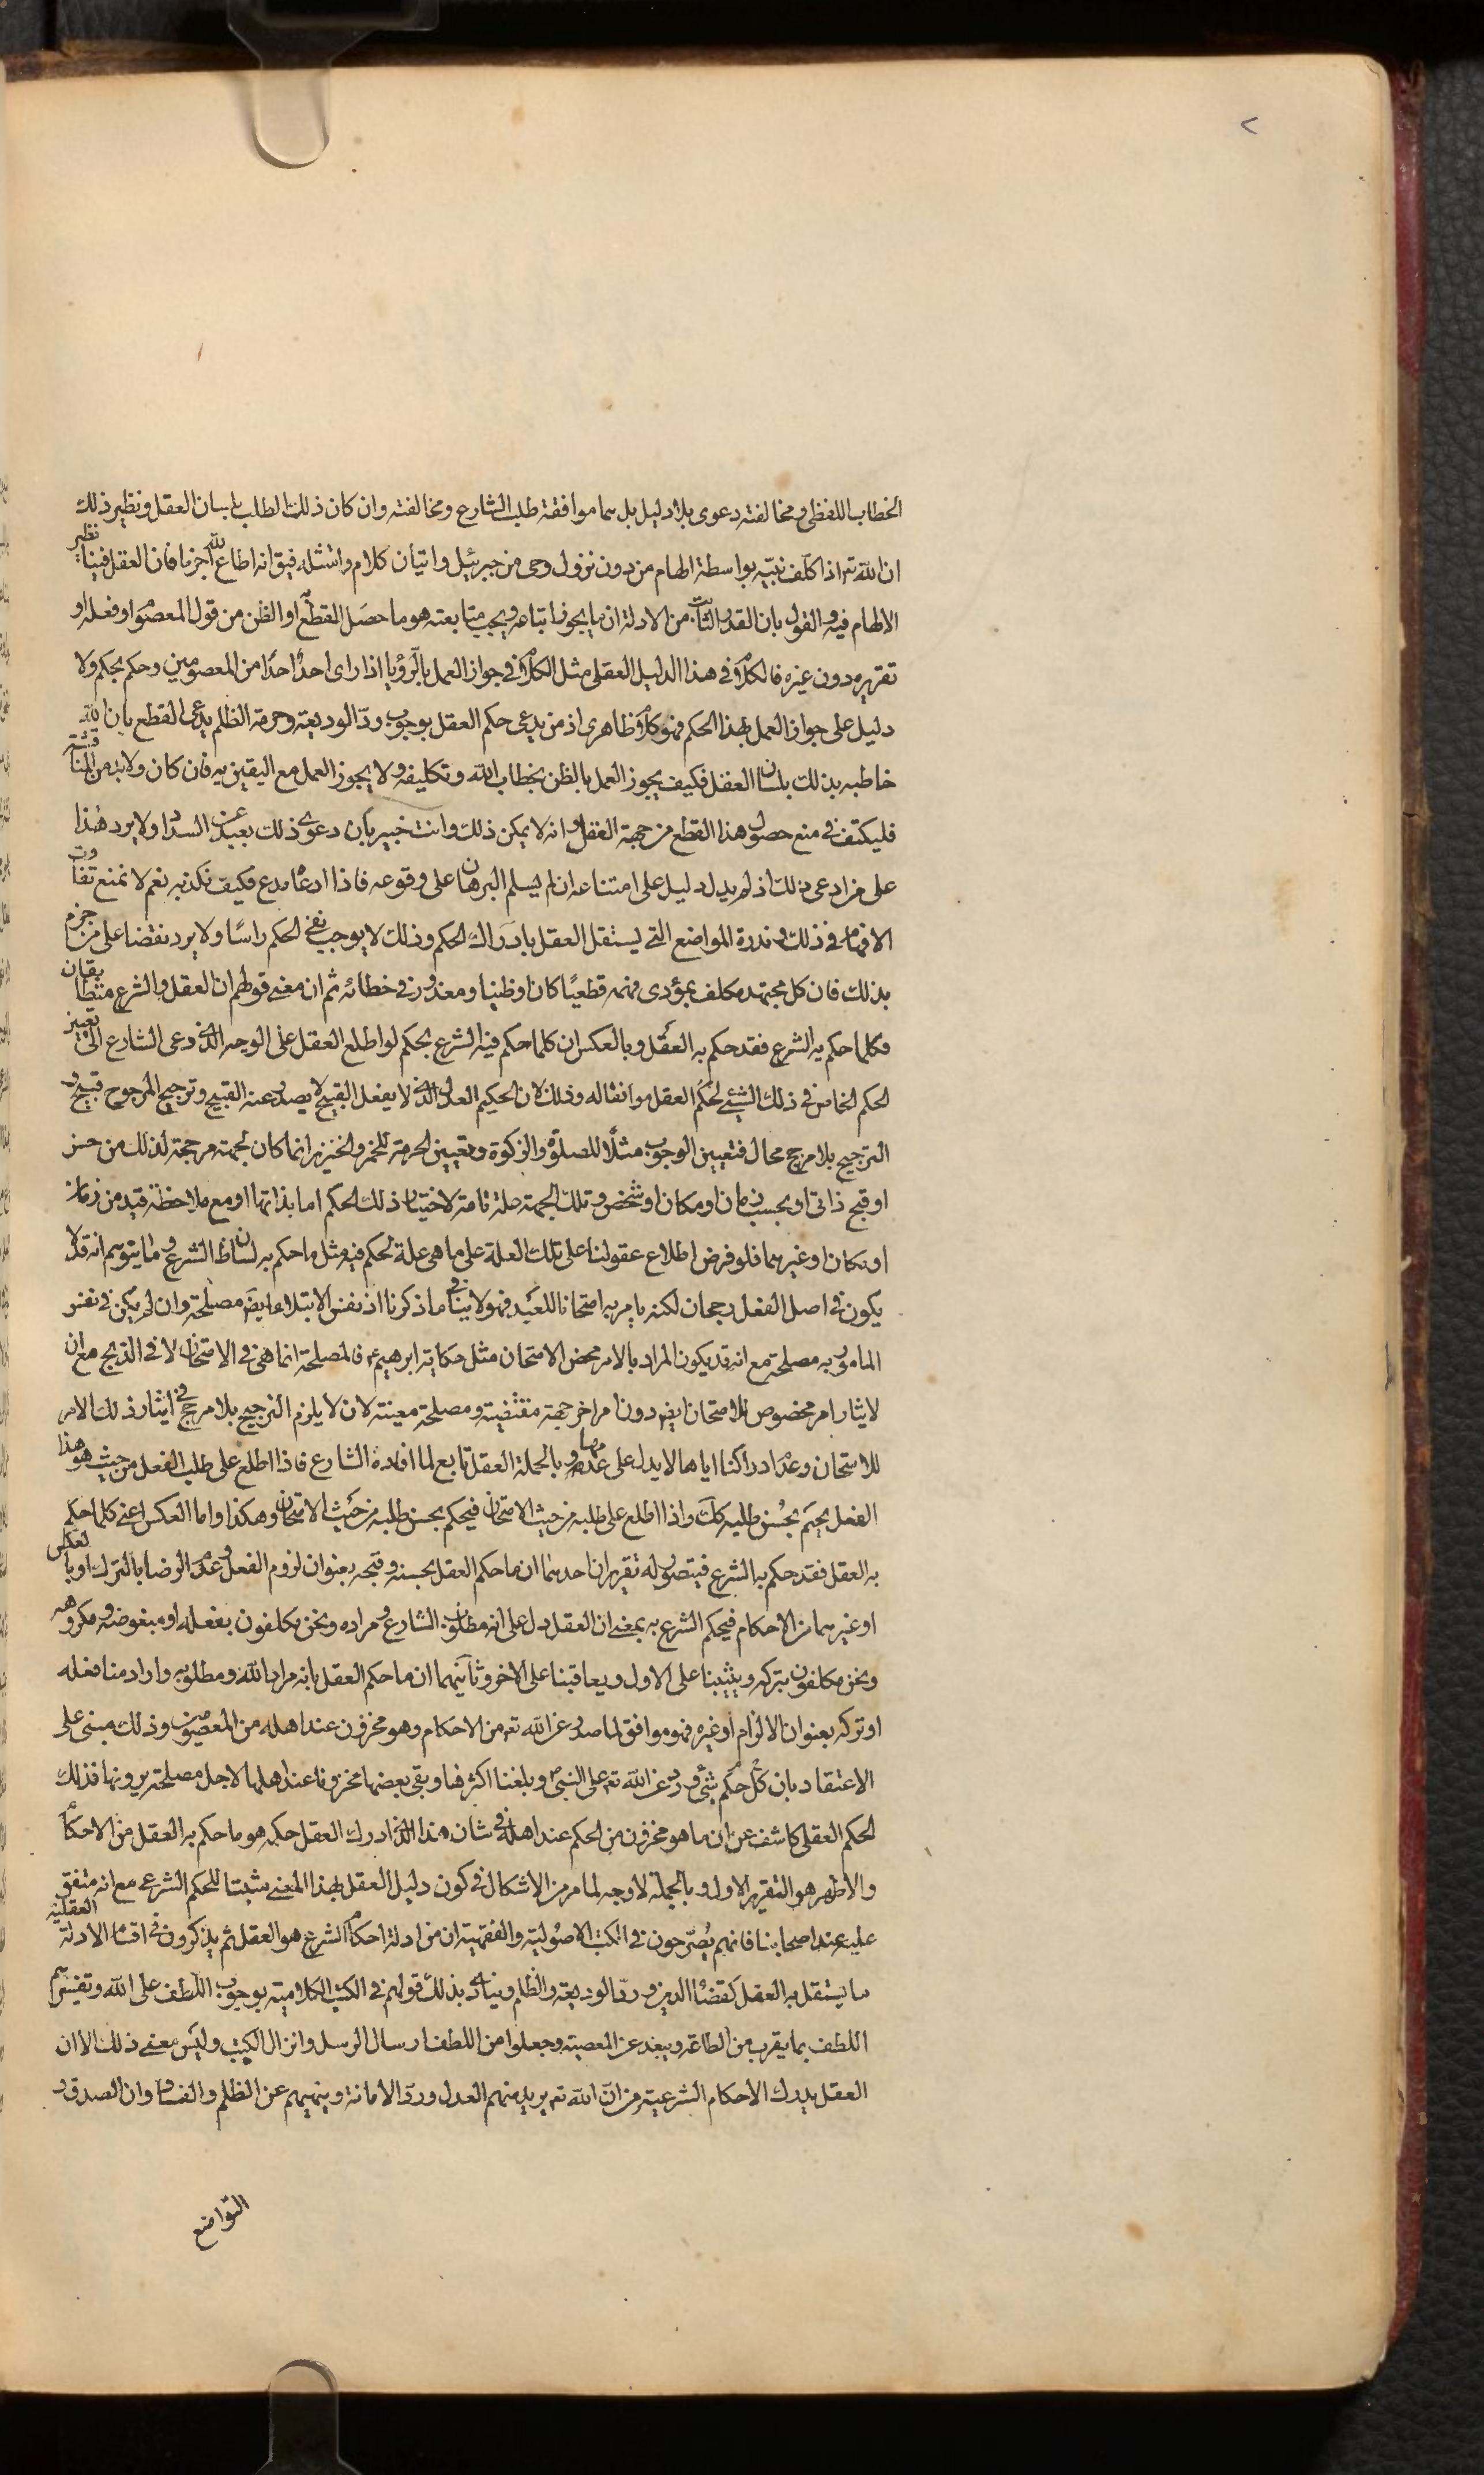 الخطاب اللفظى ومخالفته دعوى بلا دليل بل هما موافقة طلب الشارع ومخالفته وان كان ذلك الطلب بلسان العقل ونظير ذلك
ان الله تعم اذا كلّف نبيّه بواسطة الهام من دون نزول وحى من جبرئيل واتيان كلام وامتثله فيق انه اطاع الله جزما فان العقل فينا نظير
الالهام فيه والقول بان القدر الثابت من الادلة ان ما يجوز اتباعه ويجب متابعته هو ما حصل القطع او الظن من قول المعصوم او فعله او
تقريره دون غيره فالكلام فى هذا الدليل العقلى مثل الكلام فى جواز العمل بالرّؤيا اذا راى احدٌ احدًا من المعصومين وحكم بحكم ولا
دليل على جواز العمل بهذا الحكم فهو كلام ظاهرى اذ من يدعى حكم العقل بوجوب ردّ الوديعة وحرمة الظلم يدعى القطع بان الله
خاطبه بذلك بلسان العقل فكيف يجوز العمل بالظن بخطاب الله وتكليفه ولا يجوز العمل مع اليقين به فان كان ولا بد من المناقشة
فليكتف فى منع حصول هذا القطع من جهة العقل وانه لا يمكن ذلك وانت خبير بان دعوى ذلك بعيد عن السداد ولا يرد هذا
على من ادعى ذلك اذ لم يدل دليل على امتناعه ان لم يسلم البرهان على وقوعه فاذا ادعاه مدع فكيف نكذبه نعم لا نمنع تفاوت
الافهام فى ذلك وندرة المواضع التى يستقل العقل بادراك الحكم وذلك لا يوجب نفى الحكم راسًا ولا يرد نقضا على من جزم
بذلك فان كل مجتهد مكلف بمؤدى فهمه قطعيًا كان او ظنيا ومعذور فى خطائه ثم ان معنى قولهم ان العقل والشرع متطابقان
فكلما حكم به الشرع فقد حكم به العقل وبالعكس ان كلما حكم فيه الشرع بحكم لو اطلع العقل على الوجه الذى دعى الشارع الى تعيين
الحكم الخاص فى ذلك الشيئ لحكم العقل موافقا له وذلك لان الحكيم العدل الذى لا يفعل القبيح لا يصدر عنه القبيح وترجيح المرجوح قبيح و
الترجيح بلا مرجح محال فتعيين الوجوب مثلًا للصلوة والزكوة وتعيين الحرمة للخمر والخنزير انما كان لجهة مرجحة لذلك من حسن
او قبح ذاتى او بحسب زمان او مكان او شخص وتلك الجهة علة تامة لاختيار ذلك الحكم اما بذاتها او مع ملاحظة قيد من زمان
او مكان او غيرهما فلو فرض اطلاع عقولنا على تلك العلة على ما هى علة لحكم فيه مثل ما حكم به لسان الشرع وما يتوهم انه قد لا
يكون فى اصل الفعل رجحان لكنه يامر به امتحانا للعبد فهو لا ينافى ما ذكرنا اذ نفس الابتلاء ايضا مصلحة وان لم يكن فى نفس
المامور به مصلحة مع انه قد يكون المراد بالامر محض الامتحان مثل حكاية ابرهيم ع فالمصلحة انما هى فى الامتحان لا فى الذبح مع ان
لايثار امر مخصوص للامتحان ايضا دون امر اخر جهة مقتضية ومصلحة معينة لان لا يلزم الترجيح بلا مرجح فى ايثار ذلك الامر
للامتحان وعدم ادراكنا اياها لا يدل على عدمها وبالجملة العقل تابع لما افاده الشارع فاذا اطلع على طلب الفعل من حيث هو هذا
الفعل يحكم بحسن طلبه كك واذا اطلع على طلبه من حيث الامتحان فيحكم بحسن طلبه من حيث الامتحان وهكذا واما العكس اعنى كلما حكم
به العقل فقد حكم به الشرع فيتصور له تقريران احدهما ان ما حكم العقل بحسنه وقبحه بعنوان لزوم الفعل وعدم الرضا بالترك او بالعكس
او غيرهما من الاحكام فيحكم الشرع به بمعنى ان العقل دل على انه مطلوب الشارع ومراده ونحن مكلفون بفعله او مبغوضه ومكروهه
ونحن مكلفون بتركه ويثيبنا على الاول ويعاقبنا على الاخر وثانيهما ان ما حكم العقل بانه مراد الله ومطلوبه واراد منا فعله
او تركه بعنوان الالزام او غيره فهو موافق لما صدر عن الله تعم من الاحكام وهو مخزون عند اهله من المعصومين وذلك مبنى على
الاعتقاد بان كل حكم شئ ورد عن الله تعم على النبى وبلغنا اكثرها وبقى بعضها مخزونا عند اهلها لاجل مصلحة يرونها فذلك
الحكم العقلى كاشف عن ان ما هو مخزون من الحكم عند اهله فى شان هذا الذى ادرك العقل حكمه هو ما حكم به العقل من الاحكام
والاظهر هو التقرير الاول وبالجملة لا وجه لما مر من الاشكال فى كون دليل العقل بهذا المعنى مثبتا للحكم الشرعى مع انه متفق
عليه عند اصحابنا فانهم يُصرّحون فى الكتب الاصوليّة والفقهية ان من ادلة احكام الشرع هو العقل ثم يذكرون فى اقسام الادلة العقلية
ما يستقل به العقل كقضاء الدين وردّ الوديعة والظلم وينادى بذلك قولهم فى الكتب الكلامية بوجوب اللطف على الله وتفسيرهم
اللطف بما يقرب من الطاعة ويبعد عن المعصية وجعلوا من اللطف ارسال الرسل وانزال الكتب وليس معنى ذلك الا ان
العقل يدرك الاحكام الشرعية من انّ الله تعم يريد منهم العدل وردّ الامانة وينهيهم عن الظلم والفساد وان الصدق و
التواضع